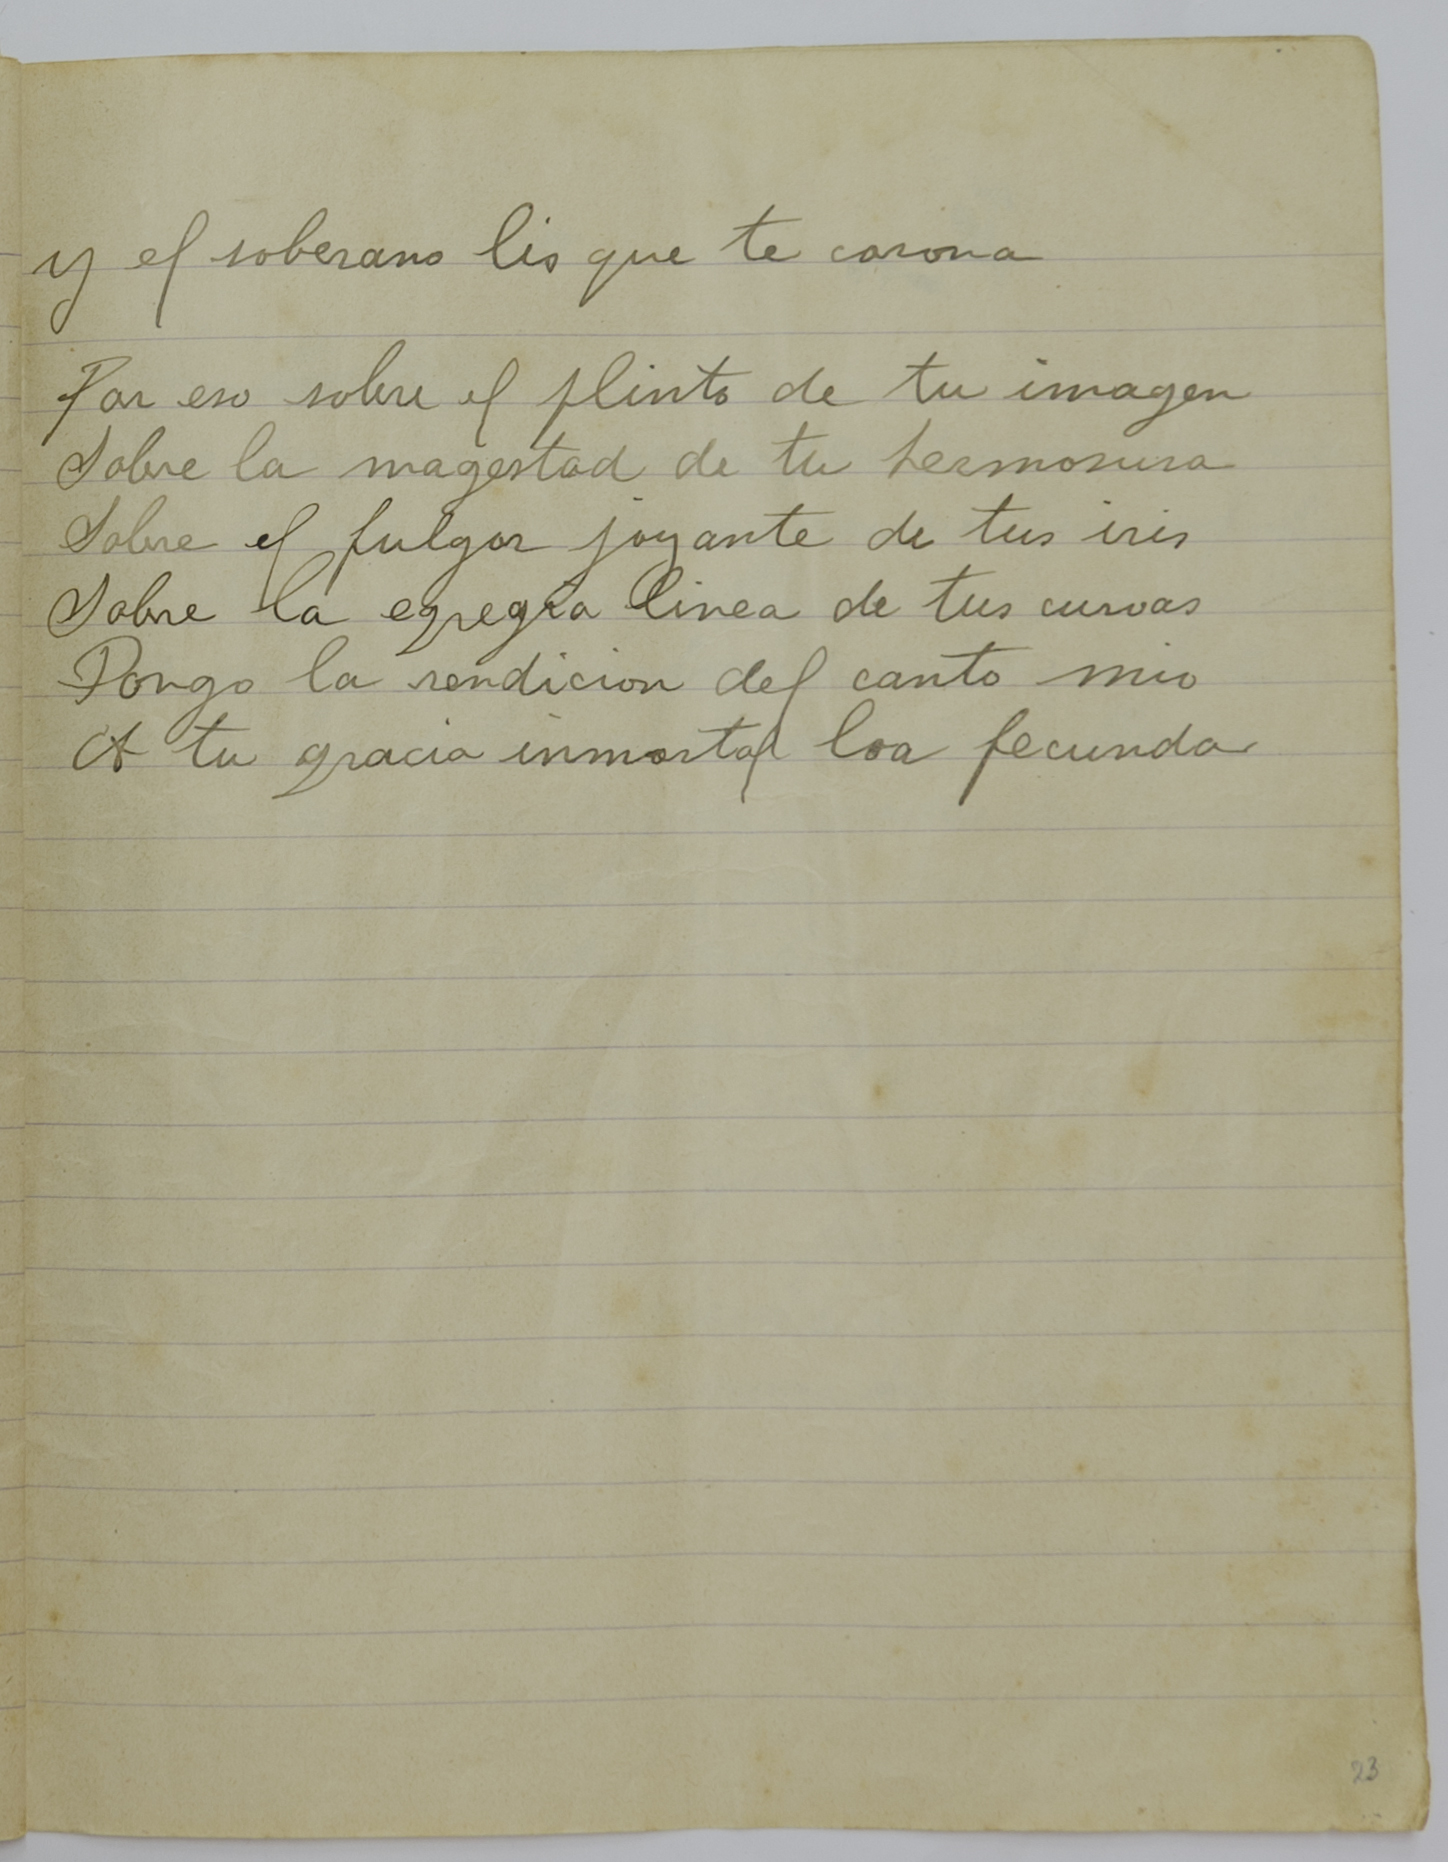 y el soberano lis que te corona
Por eso sobre el plinto de tu imagen
Sobre la magestad de tu hermosura
Sobre el fulgor joyante de tus iris
Sobre la egregia linea de tus curvas
Pongo la rendicion del canto mio
A tu gracia inmortal loa fecunda
23